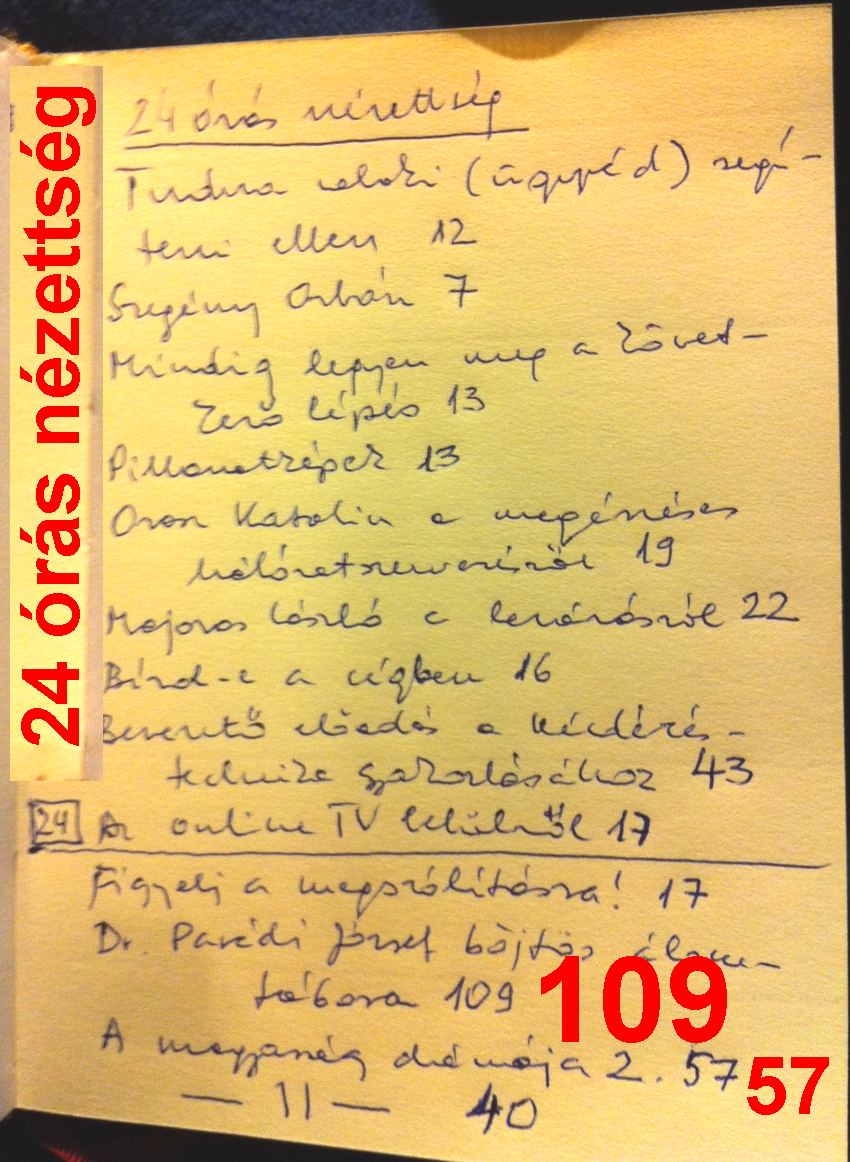 24 órás nézettség
24 órás nézettség
Tudsz valaki (ügyféd) segí-
teni ellen 12
Szegény Orbán 7
Mindig legyen meg a követ-
kező lépés 13
Pillanatképek 13
Oron Katalin a megérzéses
hálózatszervezésről 19
Majoros László a lezárásról 22
Bízol-e a cégben 16
Bevezető előadás a kérdezés-
technika gyakorlásához 43
24 Az online TV lelkületről 17
Figyelj a megszólításra! 17
Dr. Parádi József böjtös élsze-
tábora 109 109
A magyarság drámája 2. 57 57
— 11 — 40